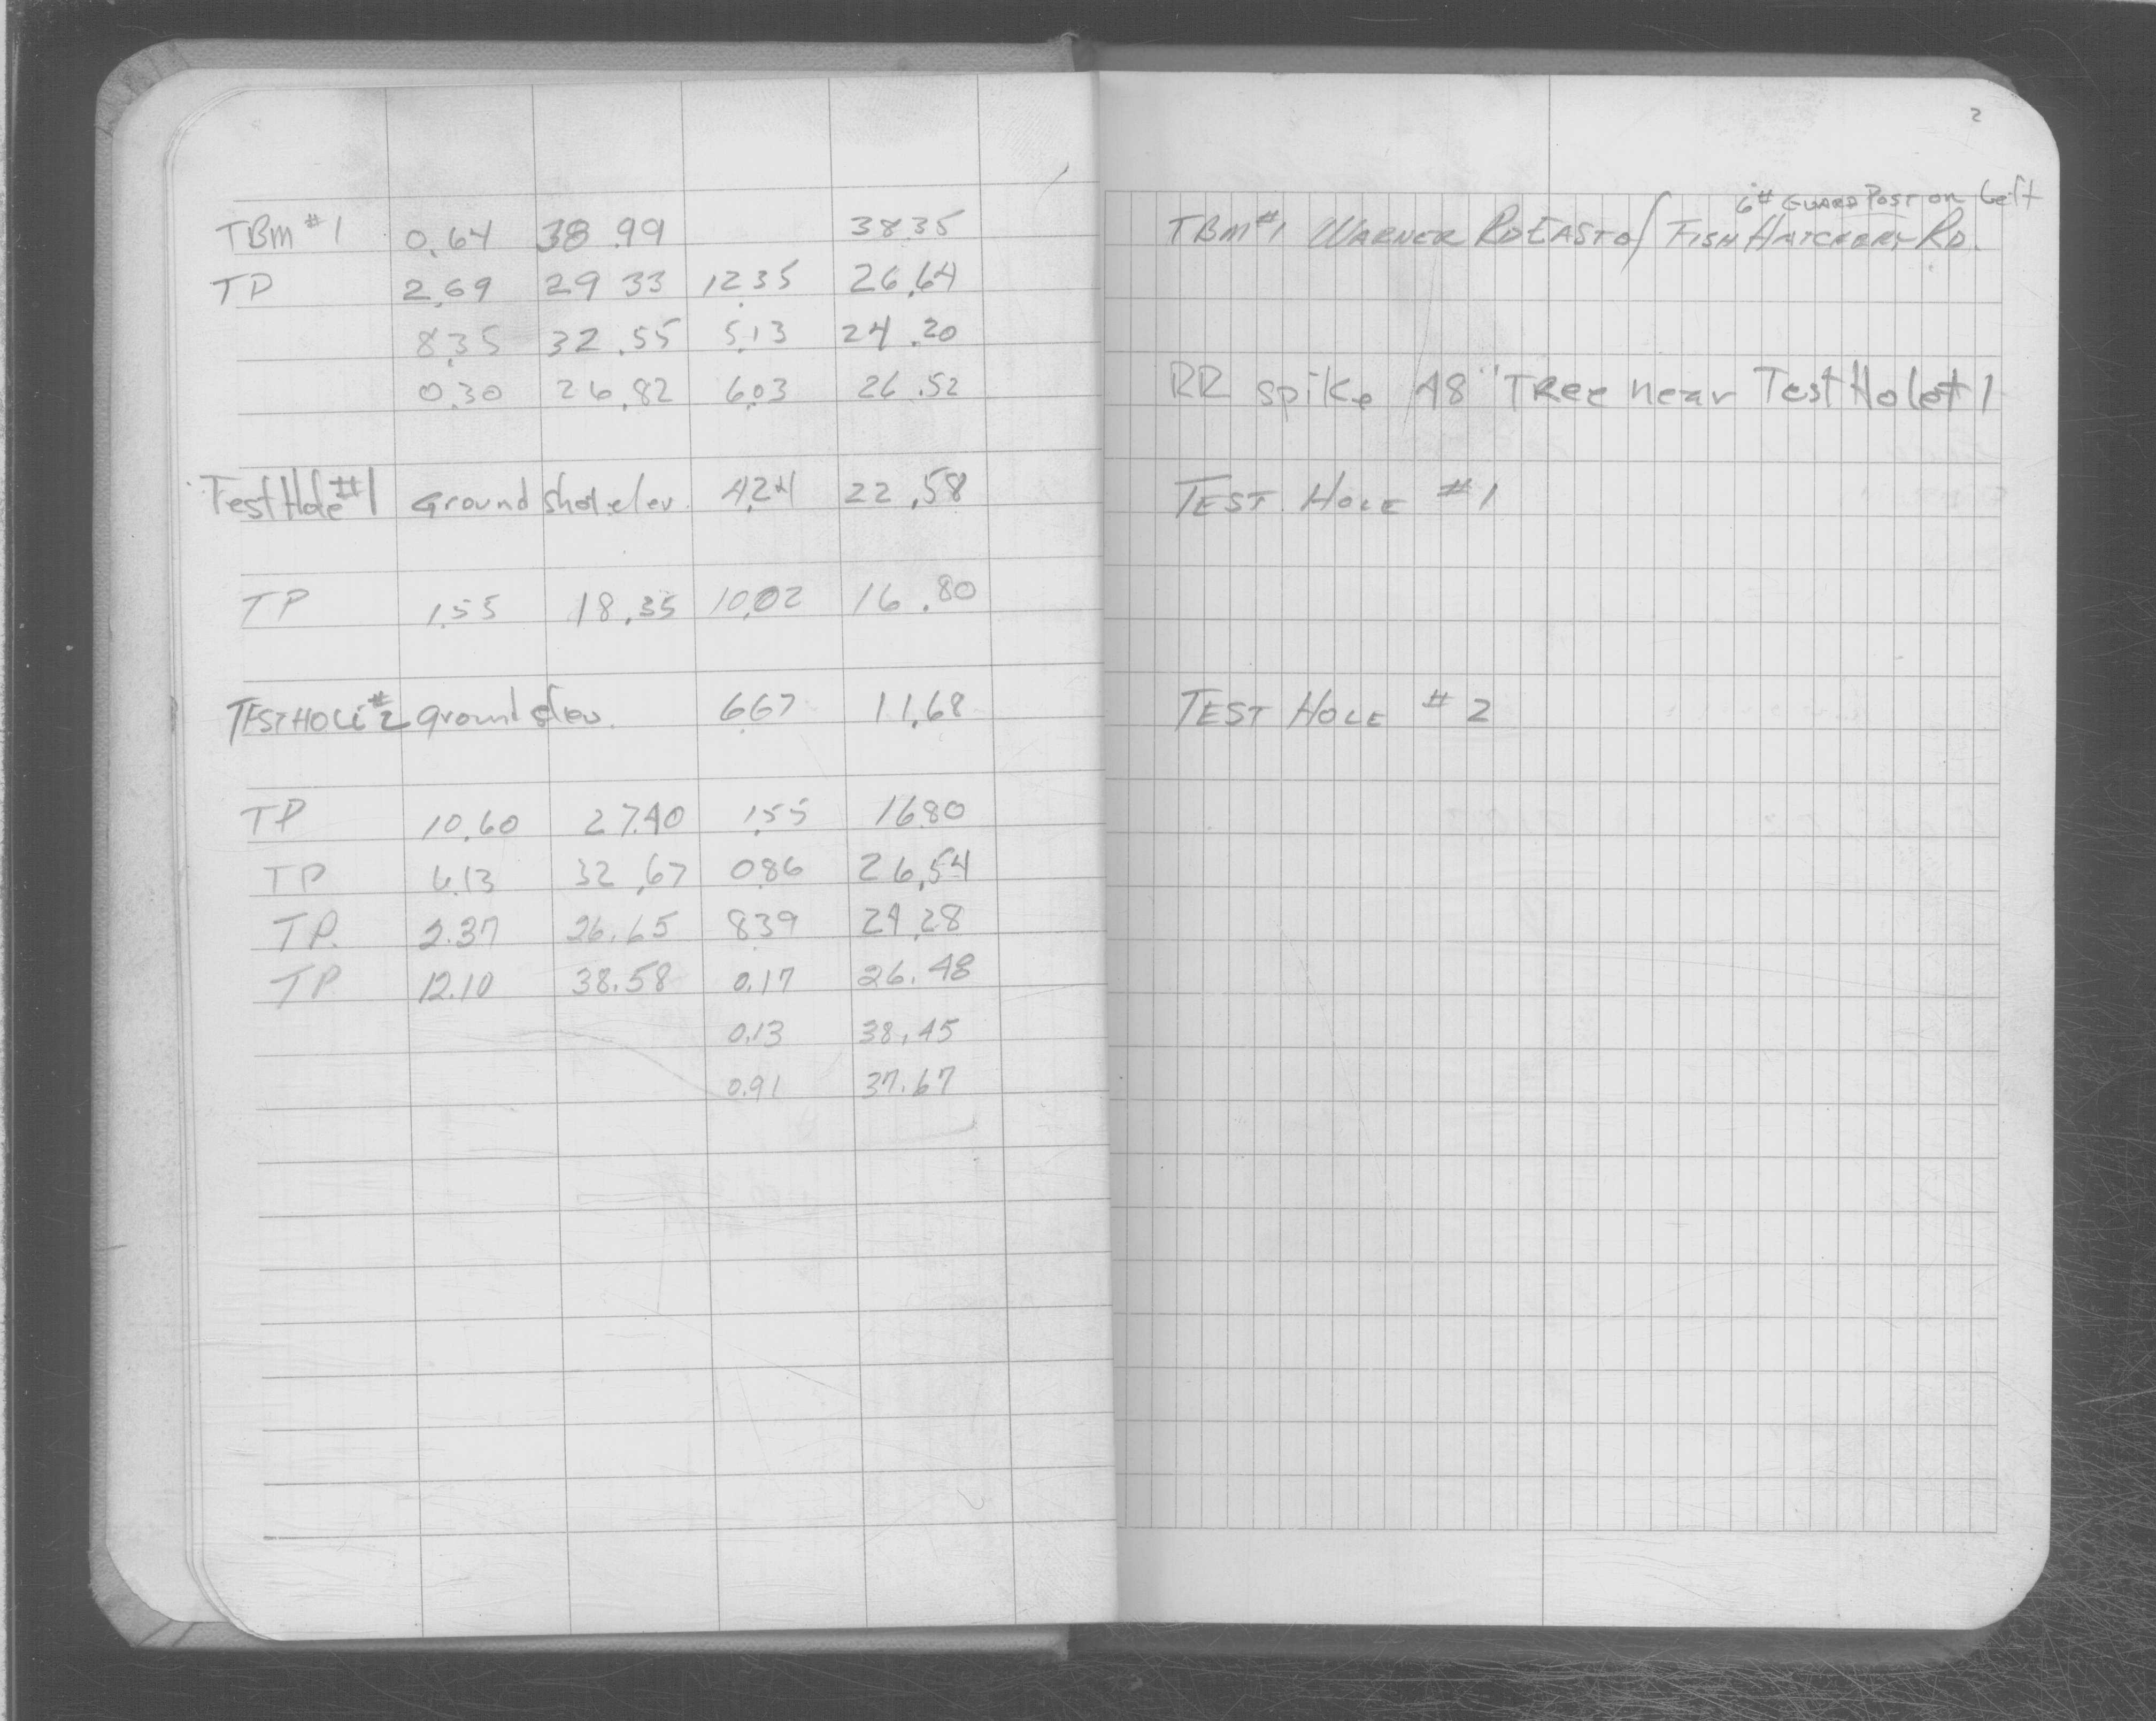 TBm #1 0.64 38.99 38.35
TP 2.69 29 33 12.35 26.64
8.35 32.55 5.13 24.20
0.30 26.82 6.03 26.52
Test Hole #1 Ground Shot elev. 4.24 22.58
TP 1.55 18.35 10.02 16.80
TEST HOLE #2 ground elev. 6.67 11.68
TP 10.60 27.40 1.55 16.80
TP 6.13 32.67 0.86 26.54
TP. 2.37 26.65 8.39 24.28
TP 12.10 38.58 0.17 26.48
0.13 38.45
0.91 37.67
2
6th GUARD POST ON Left
TBm #1 WARNER RD EAST of FISH HATCHERY RD.
RR spike 48" TRee near Test Hole # 1
TEST HOLE #1
TEST HOLE # 2